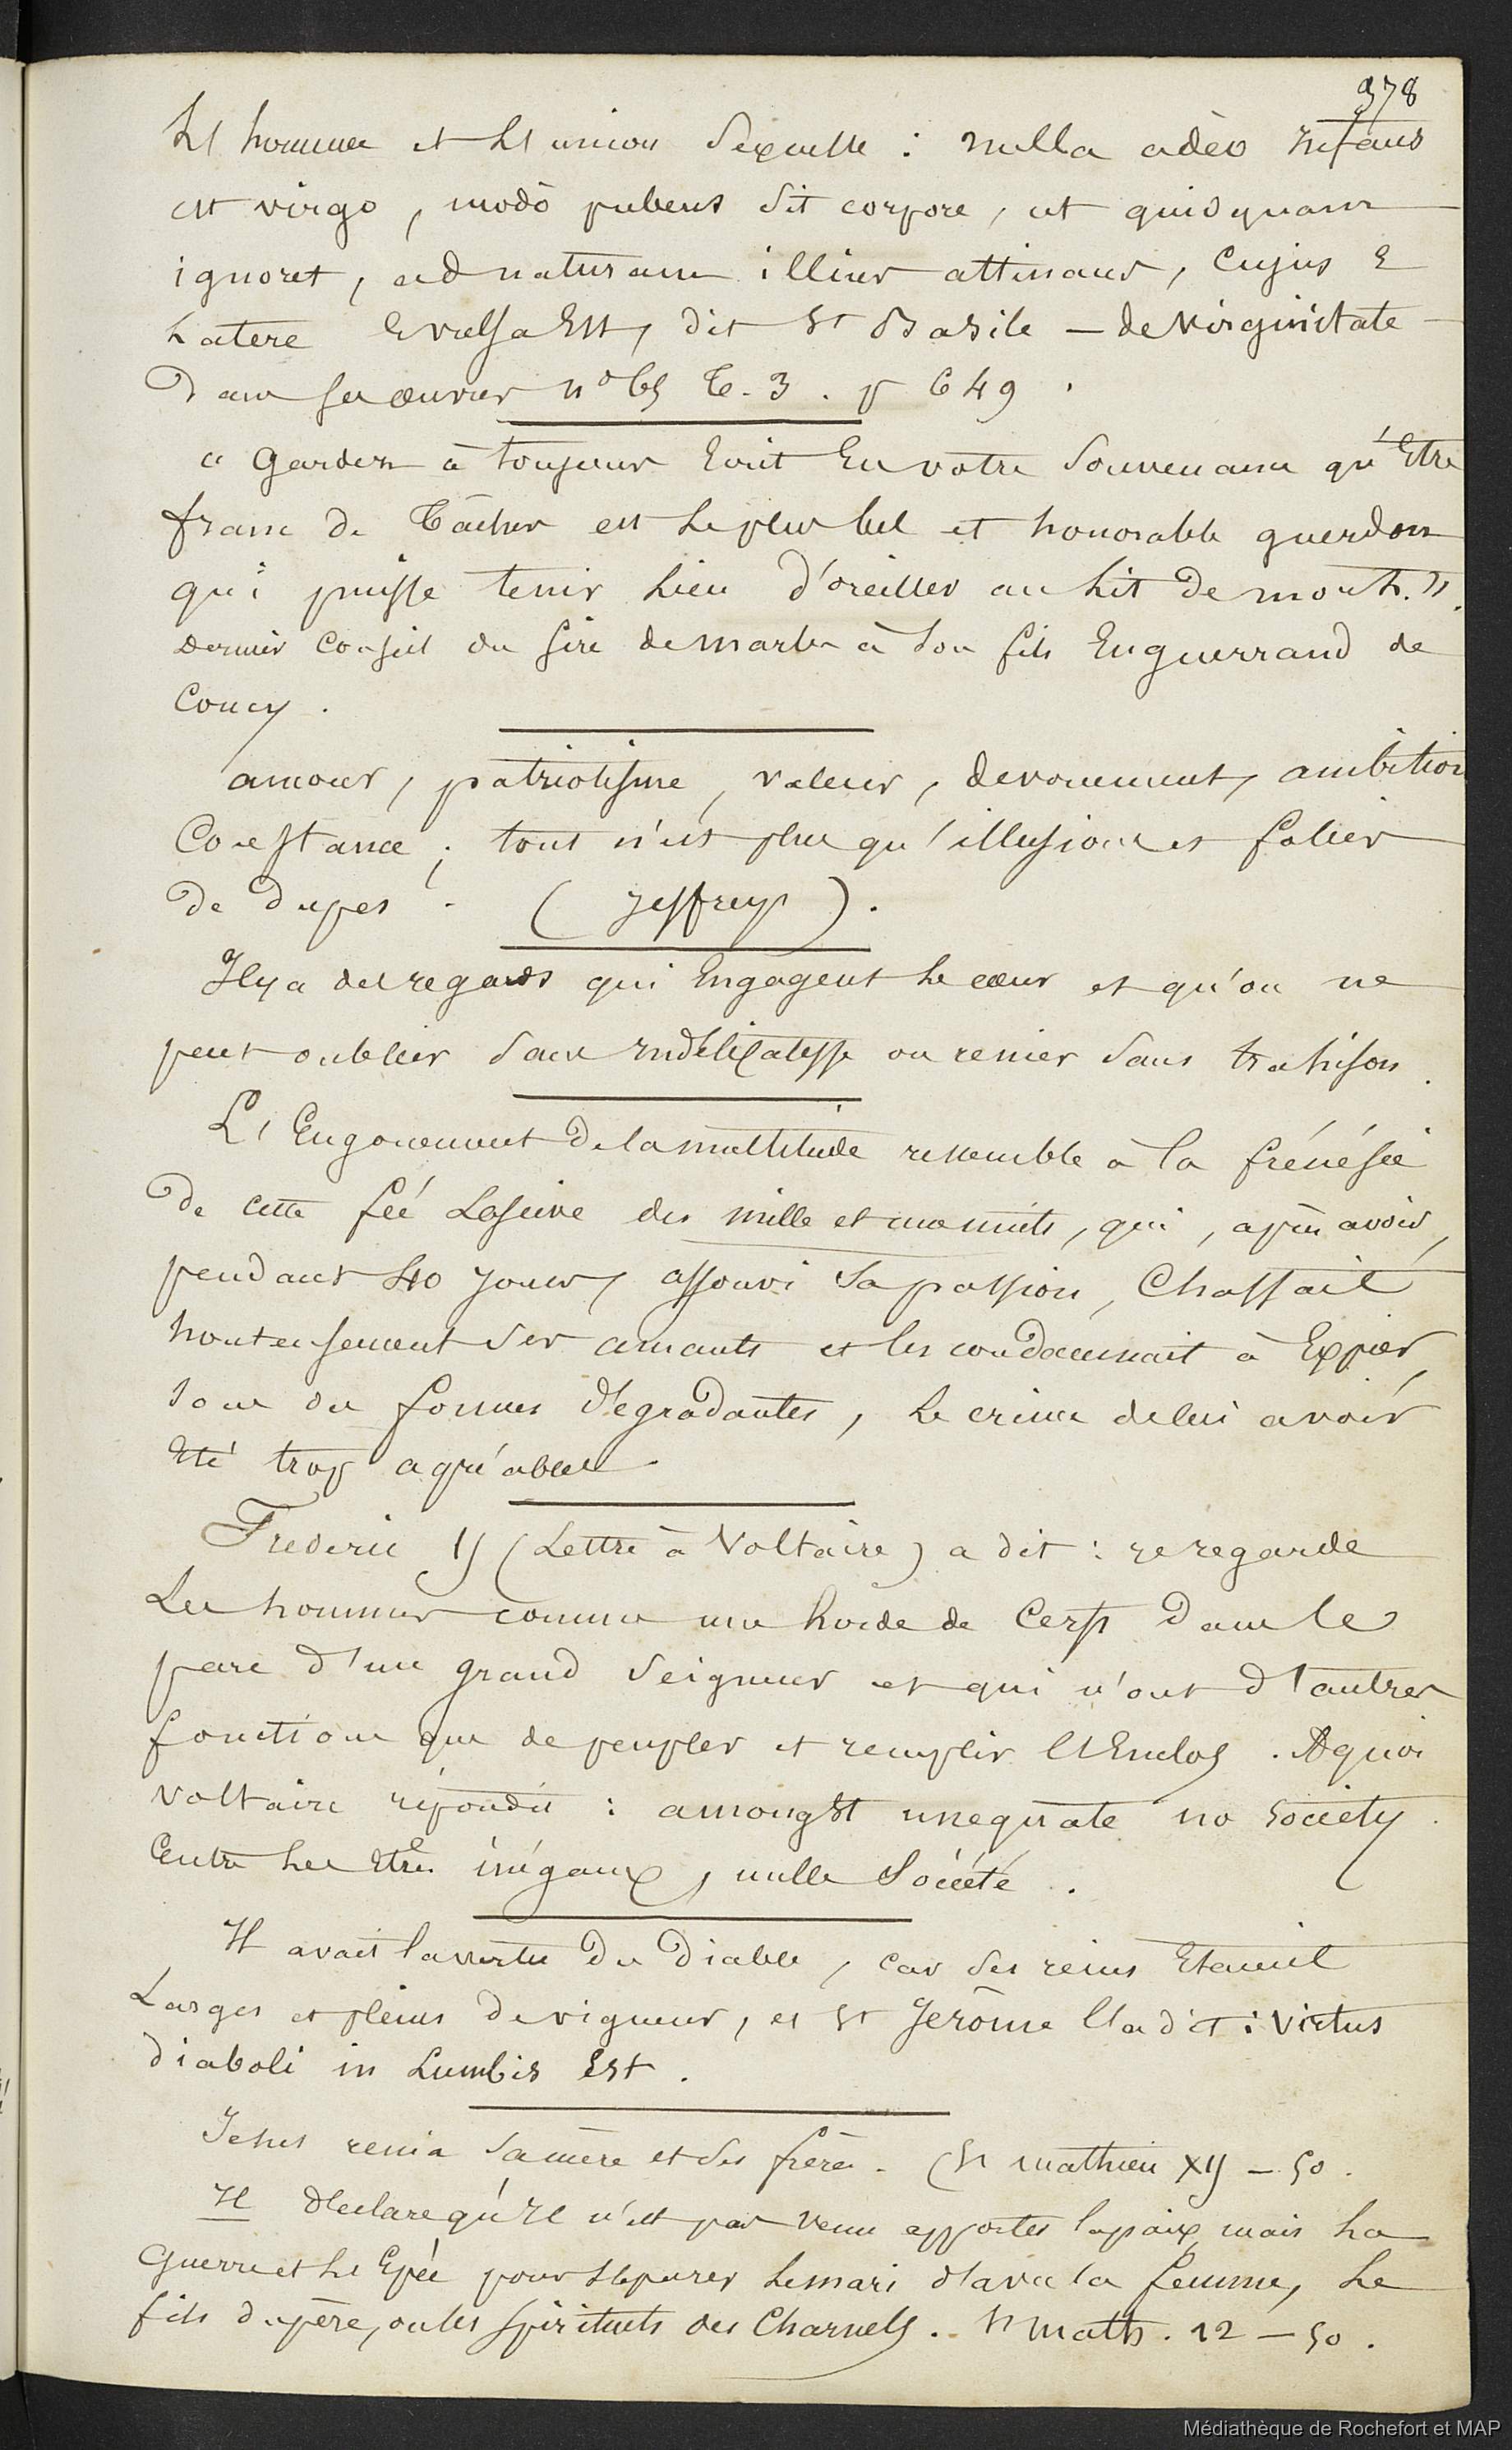 378
L'homme et L'union Sexuelle : nulla adèo infans
est virgo, modò pubens sit corpore, ut quidquam
ignoret, ad naturam illius attinans, Cujus E
Latere Evulsa Est, dit St Basile — de Virginitate —
Dans ses œuvres n° 65 T. 3. p 649.
« Garder à toujours Ecrit En votre Souvenance qu'Etre
franc de Tâches est le plus bel et honorable guerdon
qui puisse tenir Lieu d'oreiller au Lit de mort. »
dernier Conseil du Sire de marle à Son fils Enguerrand de
Coucy.
amour, patriotisme, valeur, devouement, ambition
Constance ; tout n'est plus qu'illusions et folies
De Dupes. (Jeffreys).
Il y a des regards qui Engagent Le cœur et qu'on ne
peut oublier Sans Indélicatesse ou renier Sans trahison.
L'Engouement De la multitude ressemble à la frénésie
De cette fée Lascive des mille et une nuits, qui, après avoir,
pendant 40 Jours, assouvi Sa passion, Chassait
honteusement Ses amants et les condamnait à Expier,
Sous des formes Dégradantes, Le crime de lui avoir
Eté trop agréables.
Frederic II (Lettre à Voltaire) a dit : Je regarde
Les hommes comme une horde de Cerfs Dans le
parc D'un grand Seigneur et qui n'ont D'autres
fonctions que de peupler et remplir L'Enclos. A quoi
Voltaire répondit : amongst unequate no Society.
Entre Les Etres inégaux, nulle Société.
Il avait la vertu Du Diable, Car Ses reins Etaient
Larges et pleins De vigueur, et St Jerôme l'a dit : Virtus
diaboli in Lumbis Est.
Jesus renia Sa mère et Ses frères. (St mathieu XII — 50.
Il Declare qu'Il n'est pas venu apporter la paix, mais La
Guerre et L'Epée pour Séparer Le mari D'avec la femme, Le
fils du père, ou les Spirituels des Charnels. St Math. 12 — 50.
Médiathèque de Rochefort et MAP